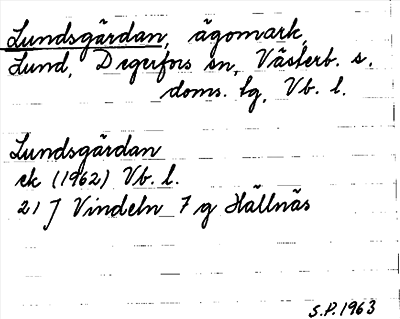 Lundsgärdan, ägomark,
Lund, Degerfors sn, Västerb. s.
doms. fg, Vb. l.
Lundsgärdan
ek (1962) Vb. l.
21 J Vindeln 7 g Hällnäs
S.P. 1963